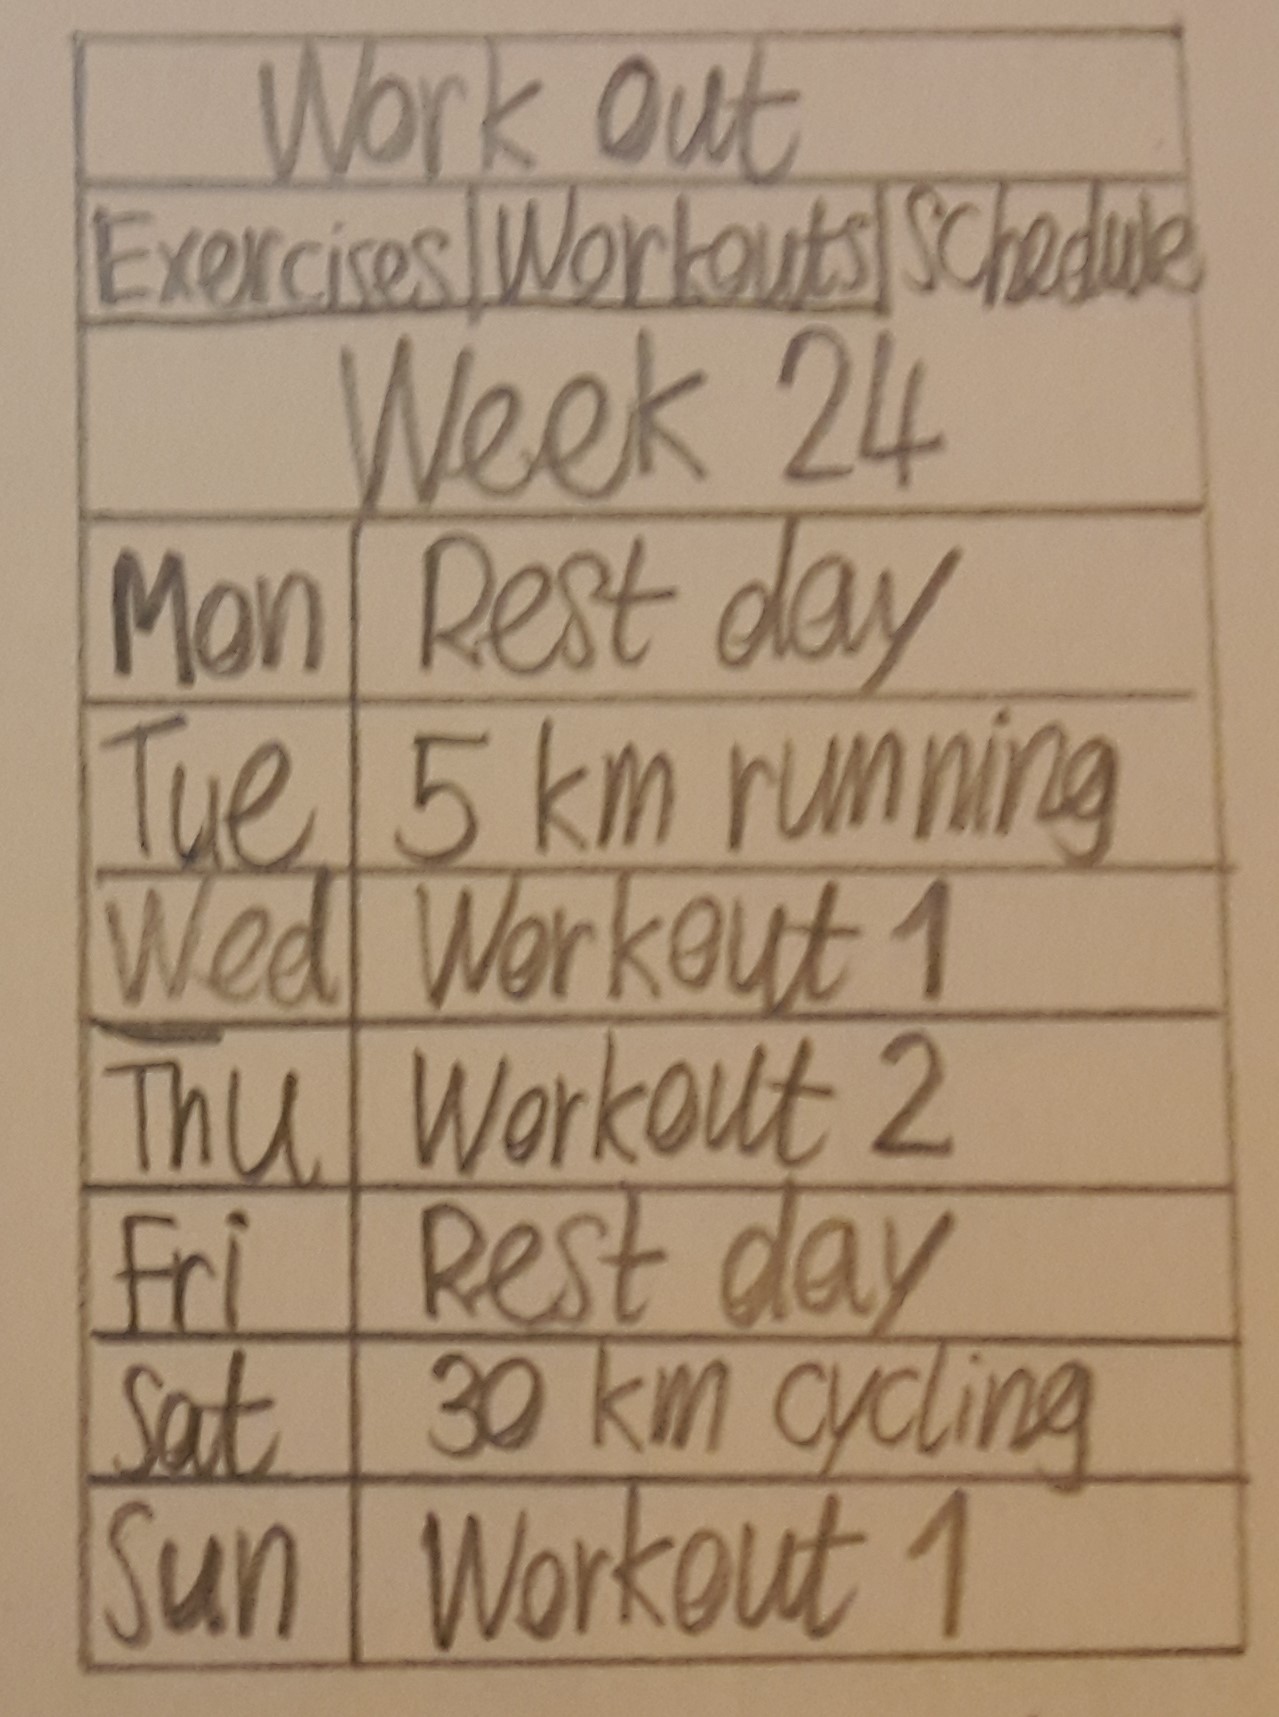 Work out
Exercises Workouts Schedule
Week 24
Mon Rest day
Tue 5 km running
Wed Workout 1
Thu Workout 2
Fri Rest day
Sat 30 km cycling
Sun Workout 1